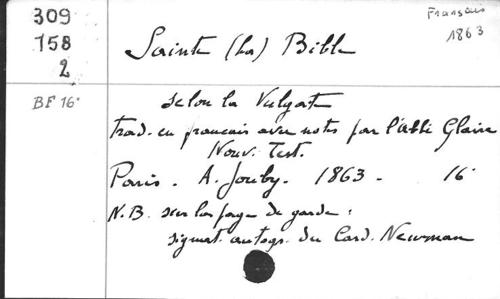 309
158
2
Français
1863
Sainte (La) Bible
BF 16°
selon la Vulgate
trad. en français avec notes par l'Abbé Glaire
Nouv. Test.
Paris. A. Jouby. 1863 - 16°
N.B. sur la page de garde :
signat. autogr. du Card. Newman